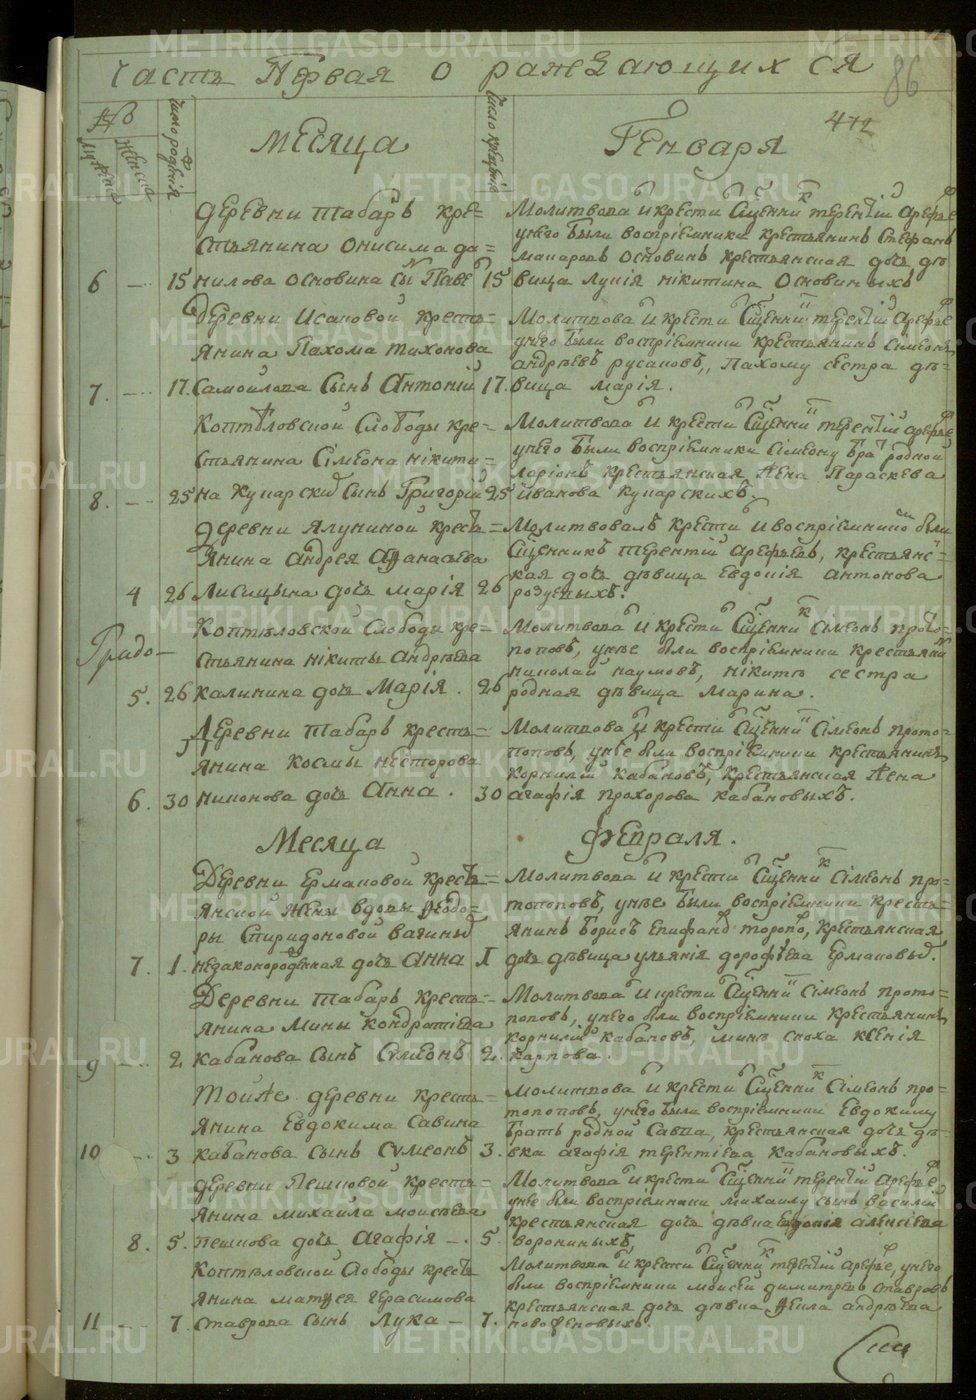 METRIKI.GASO-URAL.RU
Часть Первая о раждающихся
86
412
Месяца Генваря
деревни Табаръ кре=
стьянина Онисима да=
6 15 нилова Осковина Сы Паве 15
Молитвова и крести Сщенни терентий арефье
унего были восприемники крестьянинъ Стефанъ
макаровъ Осковинъ крестьянская дочь де
вица Лукія никитина Осковиныхъ
деревни Исаковой кресть=
янина Пахома тихонова
7. 17. Самоилова Сынъ Антоній 17.
Молитвова и крести Сщенни терентій арефье
унего были восприемники крестьянинъ Симеонъ
андреевъ русаковъ, Пахому сестра дѣ=
вица марія.
Коптеловской Слободы кре=
стьянина Сімеона нікити=
8. 25 на Кукарски Сынъ Григорій 25
Молитвова и крести Сщенни терентій арефье
унего были восприемники Сімеону бра родной
ларіонъ крестьянская жена Параскева
иванова кукарскихъ.
деревни Ялуниной кресть=
янина андрея афанасьева
4 26 Лисицына дочь марія 26
Молитвовалъ крести и восприемникой были
Сщенникъ терентій арефьевъ, крестьянс=
кая дочь дѣвица Евдокія антонова
Коптеловской Слободы кре=
стьянина нікиты андреева
5. 26 калинина дочь Марія. 26
Молитвова и крести Сщенни Сімеонъ прото=
поповъ, унее были восприемники крестьяни
николай наумовъ, нікитѣ сестра
родная дѣвица Марина.
Деревни табаръ кресть=
янина Космы несторова
6. 30 никонова дочь Анна. 30
Молитвова и крести Сщенни Сімеонъ прото=
поповъ, унее были восприемники крестьянинъ
корнилій кабановъ, крестьянская жена
агафія прохорова кабановыхъ.
Месяца февраля.
Деревни Ермаковой кресть=
янской жены вдовы федо=
ры Спиридоновой вагины
7. 1. незаконорожденная дочь Анна 1
Молитвова и крести Сщенни Сімеонъ про=
топоповъ, унее были восприемники кресть=
янинъ борисъ Епифано торопо, крестьянская
дочь дѣвица ульянія дорофеева Ермаковы.
Деревни табаръ кресть=
янина Мины Кондратіева
9 2 кабанова сынъ Сѵмеонъ 2.
Молитвова и крести Сщенни Сімеонъ прото=
поповъ, унего были восприемники крестьянинъ
корнилій кабановъ, минѣ сноха ксенія
карпова.
Тойже деревни кресть=
янина Евдокима Савина
10 3 кабанова сынъ Сѵмеонъ 3.
молитвова и крести Сщенни Сімеонъ про=
топоповъ, унего были восприемники Евдокиму
братъ родной Савва, крестьянская дочь дѣ=
вка агафія терентіева кабановыхъ.
деревни Пешковой кресть=
янина михаила моисеева
8. 5. пешкова дочь Агафія 5.
Молитвова и крести Сщенни терентій арефье
унее были восприемники михаилу сынъ василий
крестьянская дочь дѣвка Евдокія алексіева
ворониныхъ
Коптеловской Слободы кресть
янина матфея герасимова
11 7. Ставрова сынъ Лука 7.
Молитвова и крести Сщенни терентій арефье, унего
были восприемники моисей димитріевъ ставровъ
крестьянская дочь дѣвка андреева